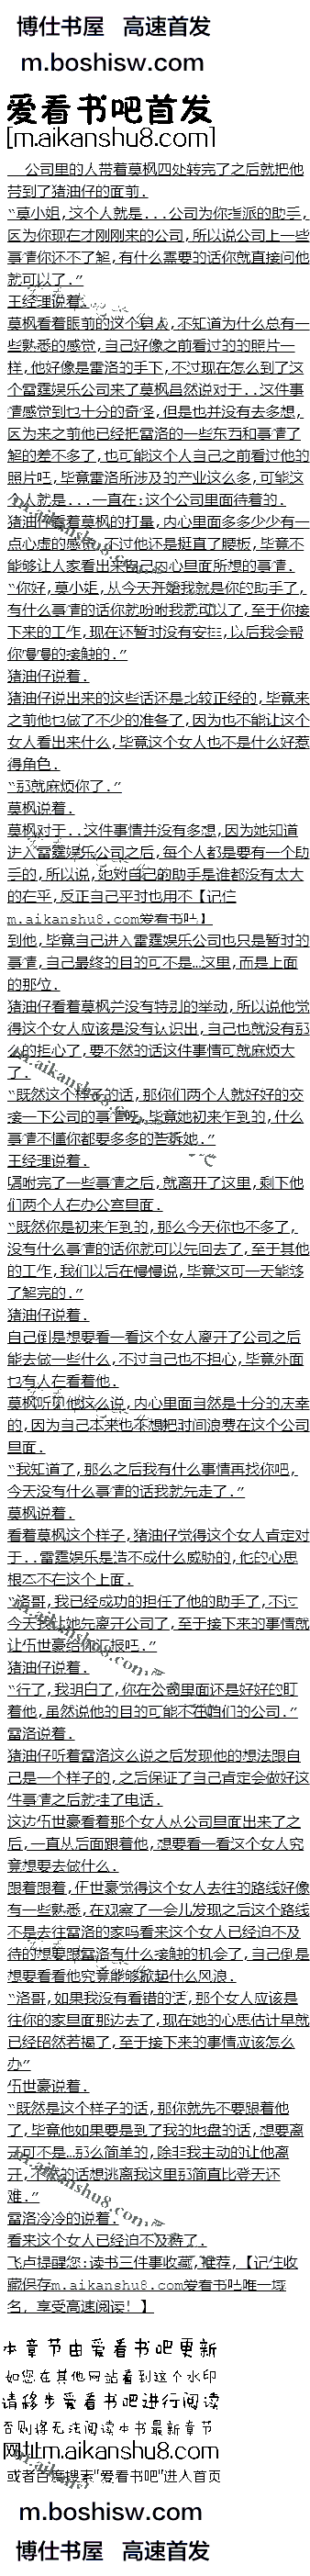 博仕书屋 高速首发
m.boshisw.com
爱看书吧首发
[m.aikanshu8.com]
公司里的人带着莫枫四处转完了之后就把他
带到了猪油仔的面前.
“莫小姐,这个人就是...公司为你指派的助手,
因为你现在才刚刚来的公司,所以说公司上一些
事情你还不了解,有什么需要的话你就直接问他
就可以了.”
王经理说着.
莫枫看着眼前的这个男人,不知道为什么总有一
些熟悉的感觉,自己好像之前看过的的照片一
样,他好像是雷洛的手下,不过现在怎么到了这
个雷霆娱乐公司来了莫枫虽然说对于..这件事
情感觉到也十分的奇怪,但是也并没有去多想,
因为来之前他已经把雷洛的一些东西和事情了
解的差不多了,也可能这个人自己之前看过他的
照片吧,毕竟雷洛所涉及的产业这么多,可能这
个人就是...一直在:这个公司里面待着的.
猪油仔看着莫枫的打量,内心里面多多少少有一
点心虚的感觉,不过他还是挺直了腰板,毕竟不
能够让人家看出来自己内心里面所想的事情.
“你好,莫小姐,从今天开始我就是你的助手了,
有什么事情的话你就吩咐我就可以了,至于你接
下来的工作,现在还暂时没有安排,以后我会帮
你慢慢的接触的.”
猪油仔说着.
猪油仔说出来的这些话还是比较正经的,毕竟来
之前他也做了不少的准备了,因为也不能让这个
女人看出来什么,毕竟这个女人也不是什么好惹
得角色.
“那就麻烦你了.”
莫枫说着.
莫枫对于..这件事情并没有多想,因为她知道
进入雷霆娱乐公司之后,每个人都是要有一个助
手的,所以说,她对自己的助手是谁都没有太大
的在乎,反正自己平时也用不【记住
m.aikanshu8.com爱看书吧】
到他,毕竟自己进入雷霆娱乐公司也只是暂时的
事情,自己最终的目的可不是…这里,而是上面
的那位.
猪油仔看着莫枫并没有特别的举动,所以说他觉
得这个女人应该是没有认识出,自己也就没有那
么的担心了,要不然的话这件事情可就麻烦大
了.
“既然这个样子的话,那你们两个人就好好的交
接一下公司的事情呀,毕竟她初来乍到的,什么
事情不懂你都要多多的告诉她.”
王经理说着.
嘱咐完了一些事情之后,就离开了这里,剩下他
们两个人在办公室里面.
“既然你是初来乍到的,那么今天你也不多了,
没有什么事情的话你就可以先回去了,至于其他
的工作,我们以后在慢慢说,毕竟这可一天能够
了解完的.”
猪油仔说着.
自己倒是想要看一看这个女人离开了公司之后
能去做一些什么,不过自己也不担心,毕竟外面
也有人在看着他.
莫枫听见他这么说,内心里面当然是十分的庆幸
的,因为自己本来也不想把时间浪费在这个公司
里面.
“我知道了,那么之后我有什么事情再找你吧,
今天没有什么事情的话我就先走了.”
莫枫说着.
看着莫枫这个样子,猪油仔觉得这个女人肯定对
于..雷霆娱乐是造不成什么威胁的,他的心思
根本不在这个上面.
“洛哥,我已经成功的担任了他的助手了,不过
今天我让她先离开公司了,至于接下来的事情就
让伍世豪给你汇报吧.”
猪油仔说着.
“行了,我明白了,你在公司里面还是好好的盯
着他,虽然说他的目的可能不在咱们的公司.”
雷洛说着.
猪油仔听着雷洛这么说之后发现他的想法跟自
己是一个样子的,之后保证了自己肯定会做好这
件事情之后就挂了电话.
这边伍世豪看着那个女人从公司里面出来了之
后,一直从后面跟着他,想要看一看这个女人究
竟想要去做什么.
跟着跟着,伍世豪觉得这个女人去往的路线好像
有一些熟悉,在观察了一会儿发现之后这个路线
不是去往雷洛的家吗看来这个女人已经迫不及
待的想要跟雷洛有什么接触的机会了,自己倒是
想要看看他究竟能够掀起什么风浪.
“洛哥,如果我没有看错的话,那个女人应该是
往你的家里面那边去了,现在她的心思估计早就
已经昭然若揭了,至于接下来的事情应该怎么
办”
伍世豪说着.
“既然是这个样子的话,那你就先不要跟着他
了,毕竟他如果要是到了我的地盘的话,想要离
开可不是…那么简单的,除非我主动的让他离
开,不然的话想逃离我这里那简直比登天还
难.”
雷洛冷冷的说着.
看来这个女人已经迫不及待了.
飞卢提醒您:读书三件事收藏,推荐,【记住收
藏保存m.aikanshu8.com爱看书吧唯一域
名，享受高速阅读！】
本章节由爱看书吧更新
如您在其他网站看到这个水印
请移步爱看书吧进行阅读
否则将无法阅读本书最新章节
网址m.aikanshu8.com
或者百度搜索"爱看书吧"进入首页
m.boshisw.com
博仕书屋 高速首发